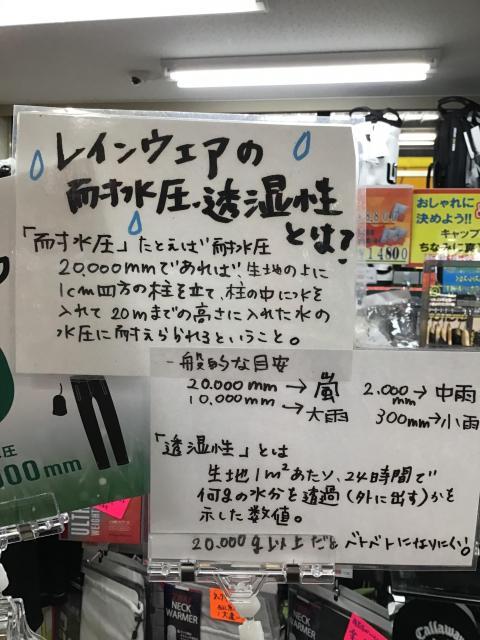 レインウェアの
耐水圧・透湿性
とは?
「耐水圧」たとえば耐水圧
20,000mmであれば生地の上に
1cm四方の柱を立て、柱の中に水を
入れて20mまでの高さに入れた水の
水圧に耐えられるということ。
一般的な目安
20.000mm→嵐
10,000mm→大雨
2.000mm→中雨
300mm→小雨
「透湿性」とは
生地1m²あたり、24時間で
何gの水分を透過(外に出す)かを
示した数値。
20.000g以上だとベトベトになりにくい!
おしゃれに
決めよう!!
キャップ
14800
圧
000mm
NECK
WARMER
NECK
WARMER
Callaway